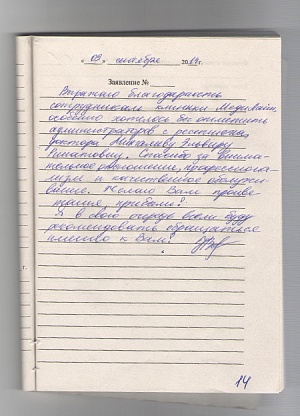 « 09 » октября 2014г.
Заявление №
Выражаю благодарность
сотрудникам клиники
особенно хотелось бы отметить
администраторов с ресепшена,
доктора Эльвиру
Ринатовну. Спасибо за внима-
тельное отношение, профессиона-
лизм и качественное обслужи-
вание. Желаю Вам процве-
тания, прибыли!
Я в свою очередь всем буду
рекомендовать обращаться
именно к Вам!
14